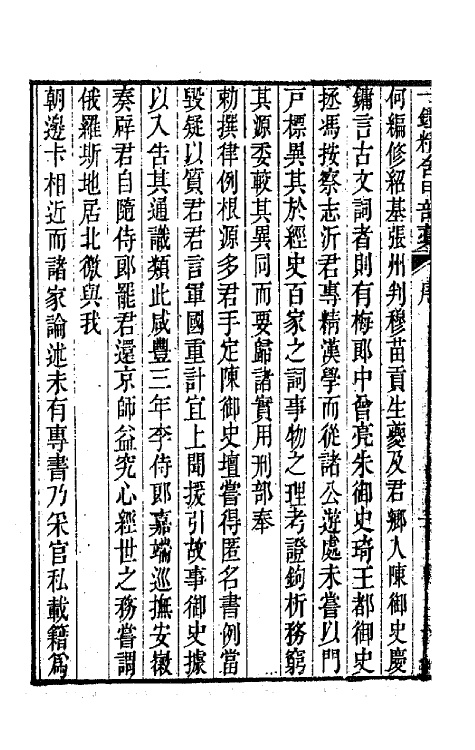 一鐙精舍甲部藁　序
何編修紹基張州判穆苗貢生夔及君鄉人陳御史慶
鏞言古文詞者則有梅郎中曾亮朱御史琦王都御史
拯馮按察志沂君專精漢學而從諸公遊處未嘗以門
戸標異其於經史百家之詞事物之理考證鉤析務窮
其源委較其異同而要歸諸實用刑部奉
勅撰律例根源多君手定陳御史壇嘗得匿名書例當
毀疑以質君君言軍國重計宜上聞援引故事御史據
以入告其通識類此咸豐三年李侍郎嘉端巡撫安徽
奏辟君自隨侍郎罷君還京師益究心經世之務嘗謂
俄羅斯地居北徼與我
朝邊卡相近而諸家論述未有專書乃采官私載籍爲